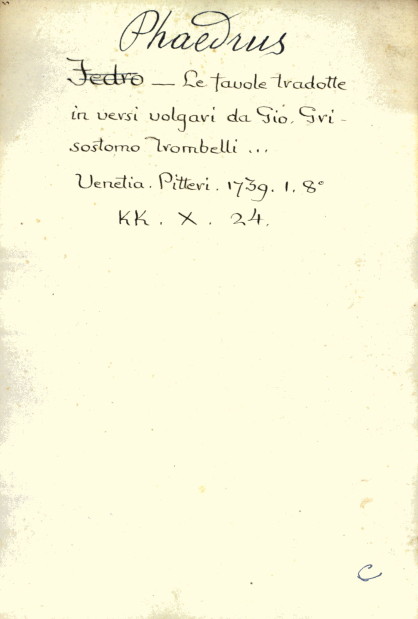 Phaedrus
Fedro — Le favole tradotte
in versi volgari da Gio. Gri-
sostomo Trombelli ...
Venetia. Pitteri. 1739. 1. 8°
KK. X. 24.
C